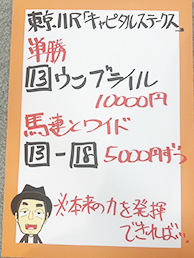 東京11R「キャピタルステークス」
単勝
13 ウンブライル
10000円
馬連とワイド
13－18 5000円ずつ
※本来の力を発揮
できれば…